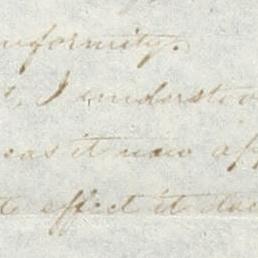 uformity.
t, I understoo
was it now app
to effect it